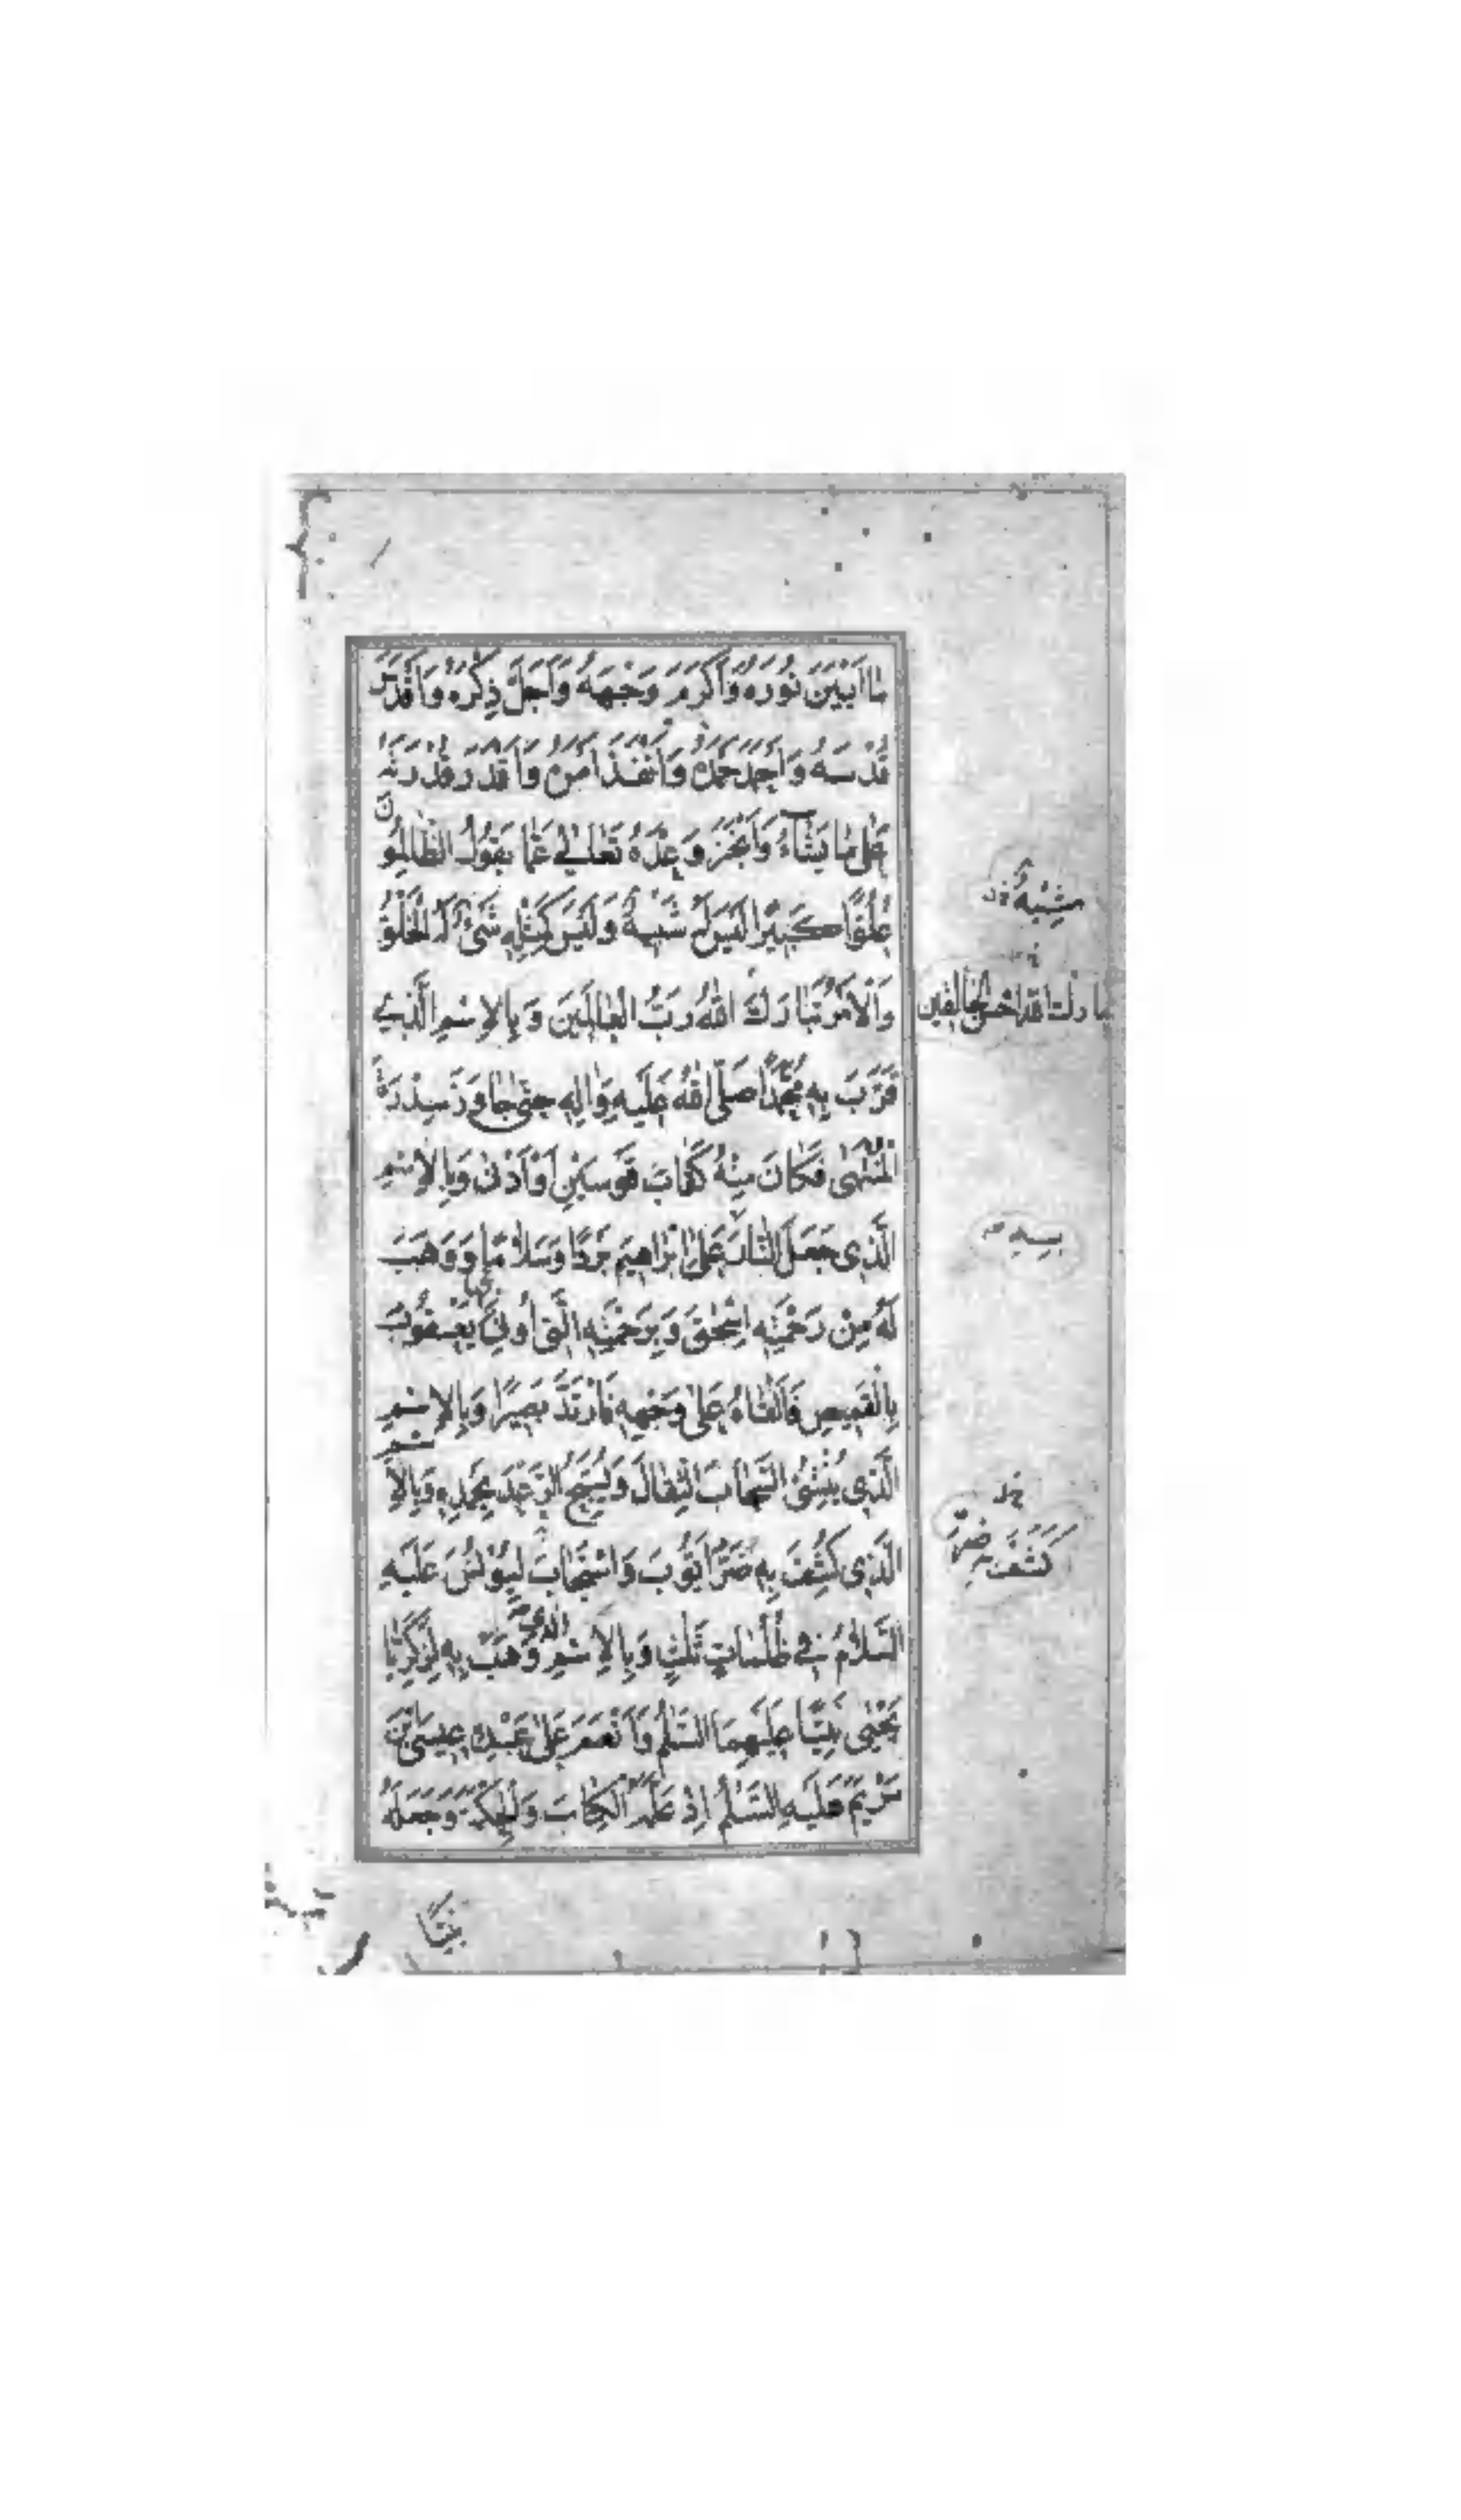 مٰا اَبْيَنَ نُورَهُ وَاَكْرَمَ وَجْهَهُ وَاَجَلَّ ذِكْرَهُ وَاَقْدَسَ
قُدْسَهُ وَاَحْمَدَ حَمْدَهُ وَاَنْفَذَ اَمْرَهُ وَاَقْدَرَ قُدْرَتَهُ
عَلىٰ مٰا يَشٰاءُ وَاَنْجَزَ وَعْدَهُ تَعٰالىٰ عَمّٰا يَقُولُ الظّٰالِمُونَ
عُلُوًّا كَبِيرًا لَيْسَ لَهُ شَبِيهٌ وَلَيْسَ كَمِثْلِهِ شَيْءٌ لَهُ الْخَلْقُ
وَالْاَمْرُ تَبٰارَكَ اللّٰهُ رَبُّ الْعٰالَمِينَ وَبِالْاِسْمِ الَّذِي
قَرَّبَ بِهِ مُحَمَّدًا صَلَّى اللّٰهُ عَلَيْهِ وَاٰلِهِ حَتّىٰ جٰاوَزَ سِدْرَةَ
الْمُنْتَهىٰ فَكٰانَ مِنْهُ كَقٰابَ قَوْسَيْنِ اَوْ اَدْنىٰ وَبِالْاِسْمِ
الَّذِي جَعَلَ النّٰارَ عَلىٰ اِبْرٰاهِيمَ بَرْدًا وَسَلٰامًا وَوَهَبَ
لَهُ مِنْ رَحْمَتِهِ اِسْحٰقَ وَبِرَحْمَتِهِ الَّتِي اُوتِيَ يَعْقُوبُ
بِالْقَمِيصِ فَاَلْقٰاهُ عَلىٰ وَجْهِهِ فَارْتَدَّ بَصِيرًا وَبِالْاِسْمِ
الَّذِي يُنْشِئُ السَّحٰابَ الثِّقٰالَ وَيُسَبِّحُ الرَّعْدُ بِحَمْدِهِ وَبِالْاِسْمِ
الَّذِي كَشَفَ بِهِ ضُرَّ اَيُّوبَ وَاسْتَجٰابَ لِيُونُسَ عَلَيْهِ
السَّلٰامُ فِي ظُلُمٰاتٍ ثَلٰثٍ وَبِالْاِسْمِ الَّذِي وَهَبَ بِهِ لِزَكَرِيّٰا
يَحْيىٰ نَبِيًّا عَلَيْهِمَا السَّلٰمُ وَاَنْعَمَ عَلىٰ عَبْدِهِ عِيسَى بْنِ
مَرْيَمَ عَلَيْهِ السَّلٰمُ اِذْ عَلَّمَهُ الْكِتٰابَ وَالْحِكْمَةَ وَجَعَلَهُ
شِبْهٌ
تبارك الله احسن الخالقين
كَشَفَ بِهِ ضُرَّ
نَبِيًّا